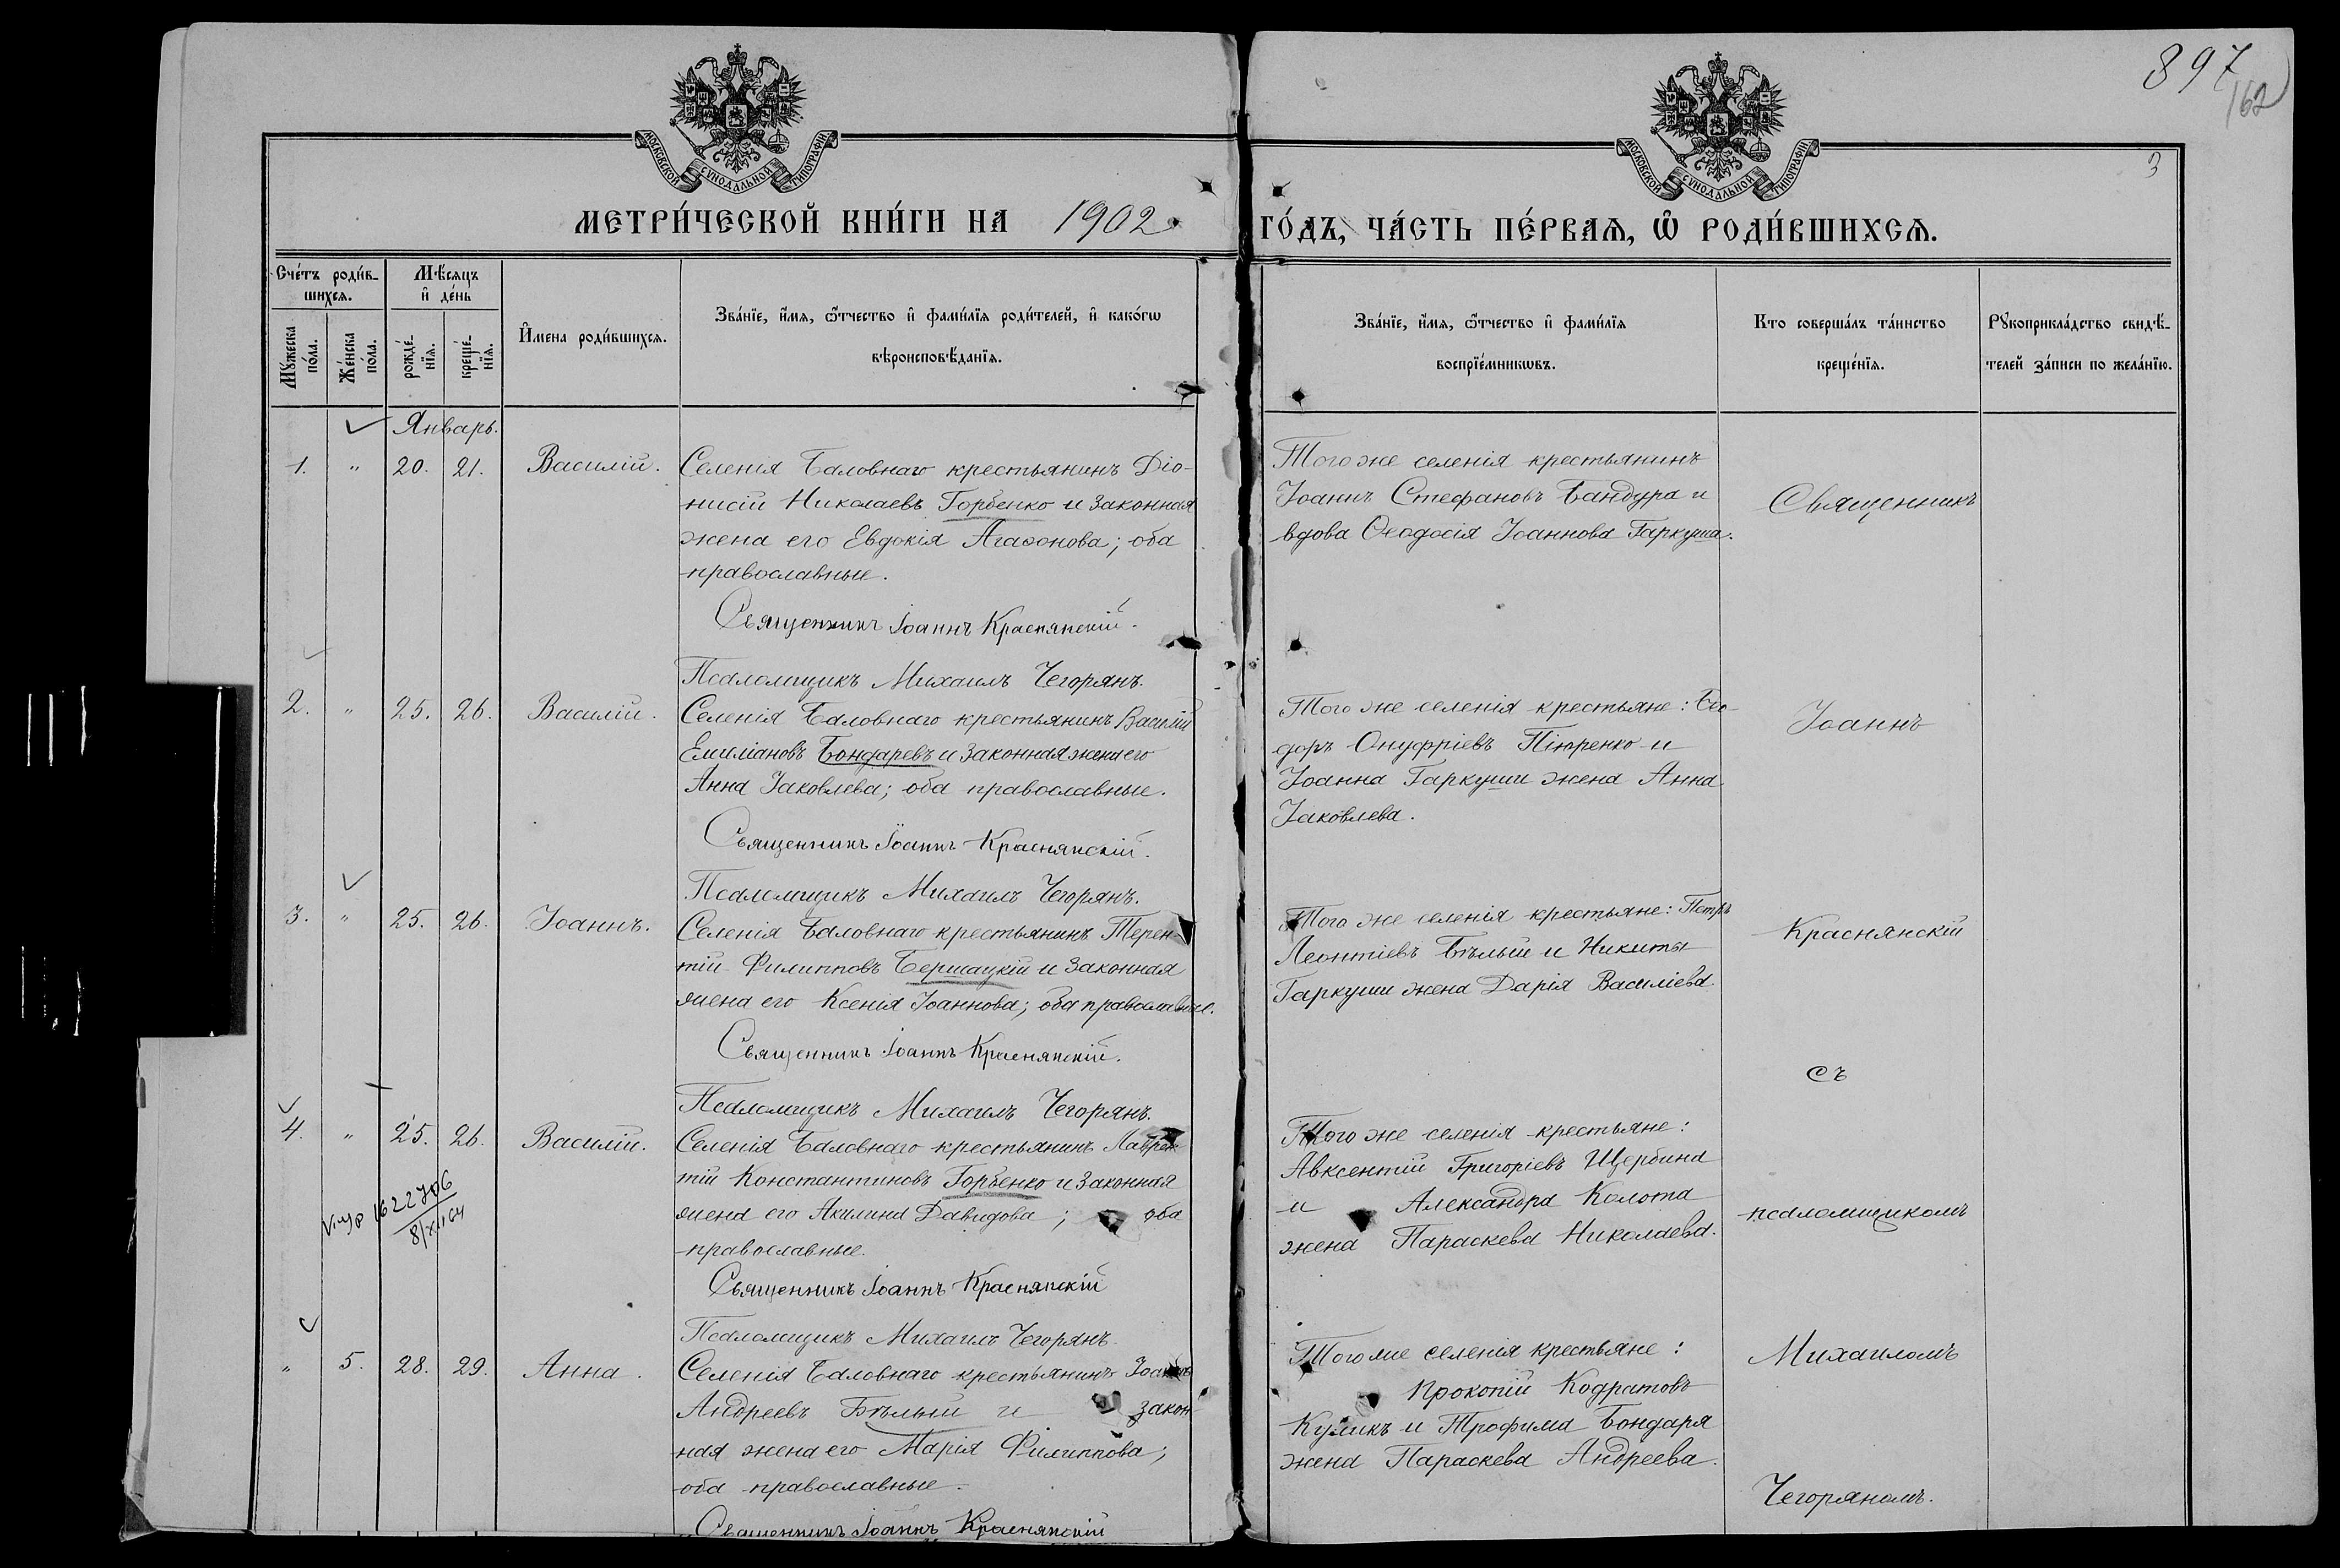 397
162
3
МОСКОВСКОЙ СѴНОДАЛЬНОЙ ТИПОГРАФІИ
МОСКОВСКОЙ СѴНОДАЛЬНОЙ ТИПОГРАФІИ
МЕТРИ́ЧЕСКОЙ КНИ́ГИ НА 1902
ГО́ДЪ, ЧА́СТЬ ПЕ́РВАѦ, Ѡ҆ РОДИ́ВШИХСѦ.
Сче́тъ роди́в-
шихсѧ.
Мꙋ́жеска по́ла.
Же́нска по́ла.
Мѣ́сѧцъ
и҆ де́нь
рожде́-нїѧ.
креще́-нїѧ.
И҆́мена роди́вшихсѧ.
Зва́нїе, и҆́мѧ, ѻ҆́тчество и҆ фами́лїѧ роди́телей, и҆ како́гѡ
вѣроисповѣ́данїѧ.
Зва́нїе, и҆́мѧ, ѻ҆́тчество и҆ фами́лїѧ
воспрїе́мникѡвъ.
Кто соверша́лъ та́инство
креще́нїѧ.
Рꙋкоприкла́дство свидѣ́-
телей за́писи по жела́нїю.
Январь.
1. " 20. 21. Василій.
Селенія Баловнаго крестьянинъ Діо-
нисій Николаевъ Горбенко и законная
жена его Евдокія Агаѳонова; оба
православные.
Священникъ Іоаннъ Краснянскій.
Псаломщикъ Михаилъ Чегорянъ.
Того же селенія крестьянинъ
Іоаннъ Стефановъ Бандура и
вдова Ѳеодосія Іоаннова Гаркуша.
Священникъ
2. " 25. 26. Василій.
Селенія Баловнаго крестьянинъ Василій
Емиліановъ Бондаревъ и законная жена его
Анна Іаковлева; оба православные.
Священникъ Іоаннъ Краснянскій.
Псаломщикъ Михаилъ Чегорянъ.
Того же селенія крестьяне: Ѳео-
доръ Онуфріевъ Пюренко и
Іоанна Гаркуши жена Анна
Іаковлева.
Іоаннъ
3. " 25. 26. Іоаннъ.
Селенія Баловнаго крестьянинъ Терен-
тій Филипповъ Бершацкій и законная
жена его Ксенія Іоаннова; оба православные.
Священникъ Іоаннъ Краснянскій.
Псаломщикъ Михаилъ Чегорянъ.
Того же селенія крестьяне: Петръ
Леонтіевъ Бѣлый и Никиты
Гаркуши жена Дарія Василіева
Краснянскій
съ
4. " 25. 26. Василій.
1622706
8/XII 64
Селенія Баловнаго крестьянинъ Лаврен
тій Константиновъ Горбенко и законная
жена его Акилина Давидова; оба
православные.
Священникъ Іоаннъ Краснянскій
Псаломщикъ Михаилъ Чегорянъ
Того же селенія крестьяне:
Авксентій Григоріевъ Щербина
и Александра Колота
жена Параскева Николаева.
псаломщикомъ
" 5. 28. 29. Анна.
Селенія Баловнаго крестьянинъ Іоаннъ
Андреевъ Бѣлый и закон-
ная жена его Марія Филиппова;
оба православные.
Священникъ Іоаннъ Краснянскій
Того же селенія крестьяне:
Прокопій Кодратовъ
Куликъ и Трофима Бондаря
жена Параскева Андреева.
Михаиломъ
Чегоряномъ.